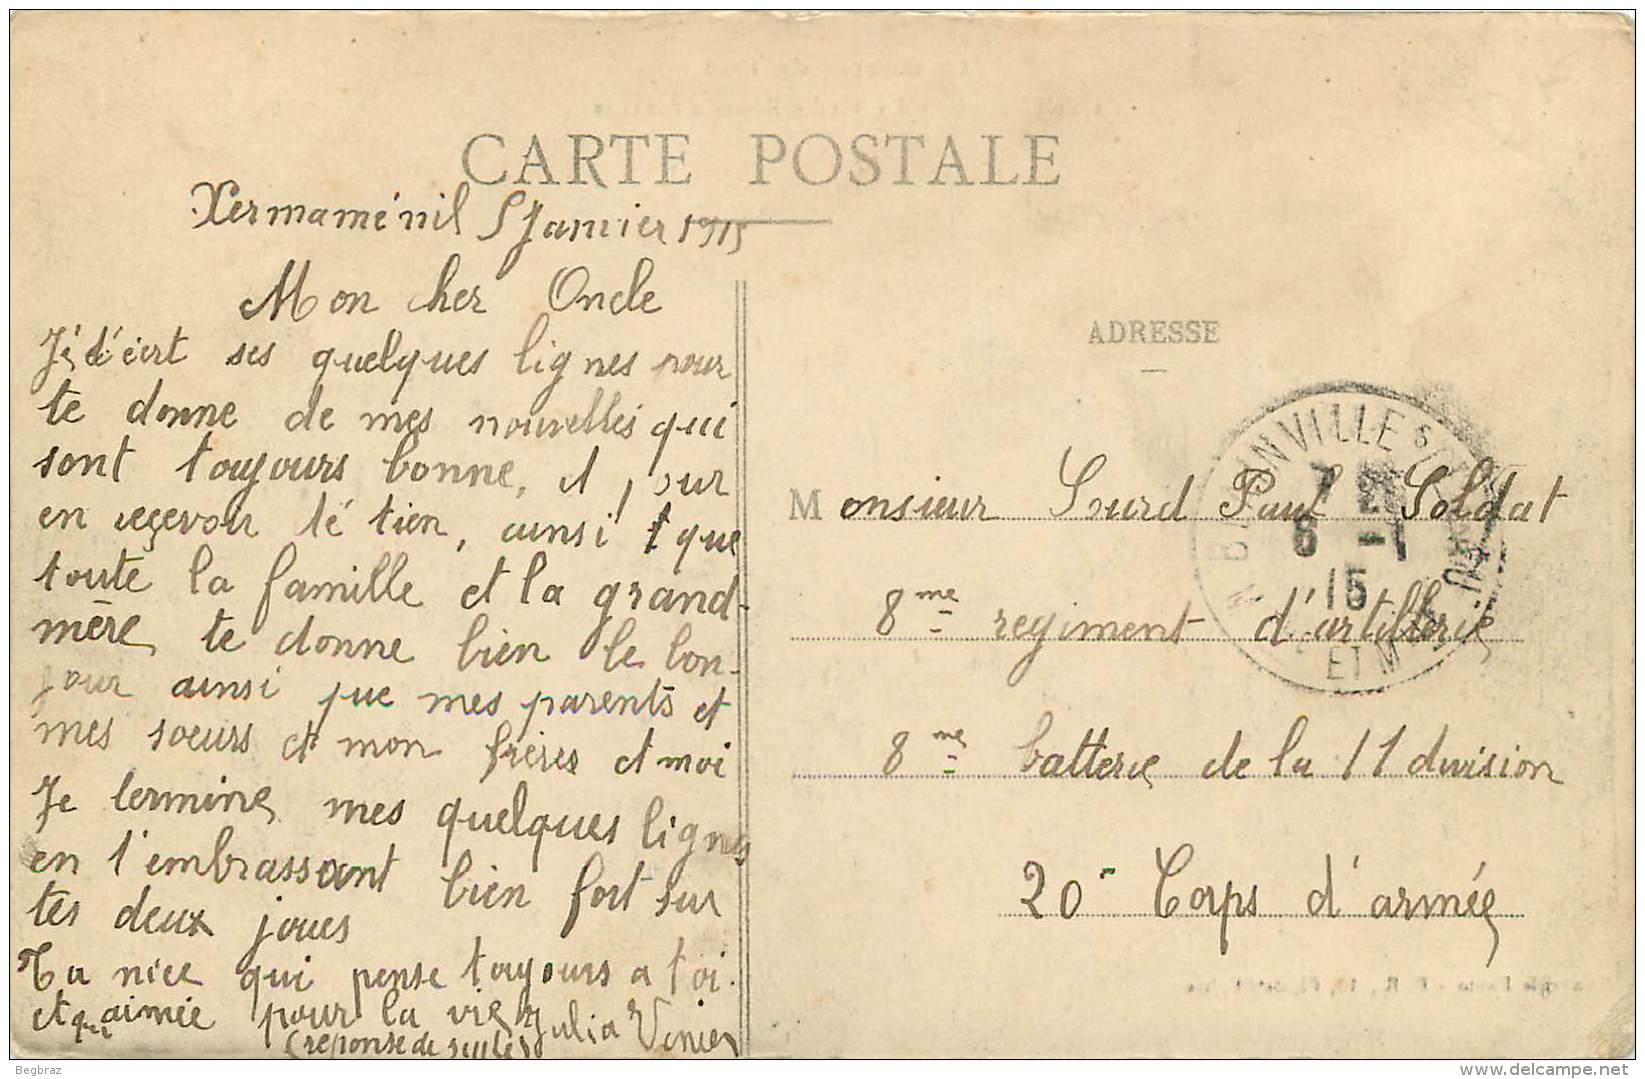 CARTE POSTALE
Xermaménil 5 Janvier 1915
Mon cher Oncle
J'é d'éert ses quelques lignes pour
te donne de mes nouvelles qui
sont toujours bonne, et pour
en reçevoir té tien, ainsi que
toute la famille et la grand-
mère te donne bien le bon-
jour ainsi que mes parents et
mes soeurs et mon frères et moi
Je termine mes quelques lignes
en t'embrassant bien fort sur
tes deux joues
Ta niece qui pense toujours a toi.
et qui aimée pour la vie Julia Vinier
(reponse de suite)
ADRESSE
Monsieur Sourd Paul Soldat
8me regiment d'artillerie
8me batterie de la 11 division
20e Corps d'armée
BLAINVILLE
6 -1
15
ET M
Begbraz
delcampe.net